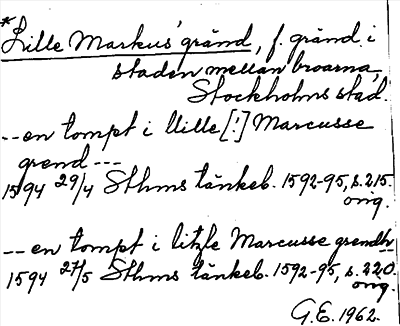 *Lille Markus' gränd, f. gränd i
staden mellan broarna,
Stockholms stad.
--en tompt i Ulille [!] Marcusse
grend ---
1594 29/4 Sthms tänkeb. 1592-95, s. 215.
orig.
--en tompt i litzle Marcusse grendh--
1594 27/5 Sthms tänkeb. 1592-95, s. 220.
orig.
G.E. 1962.